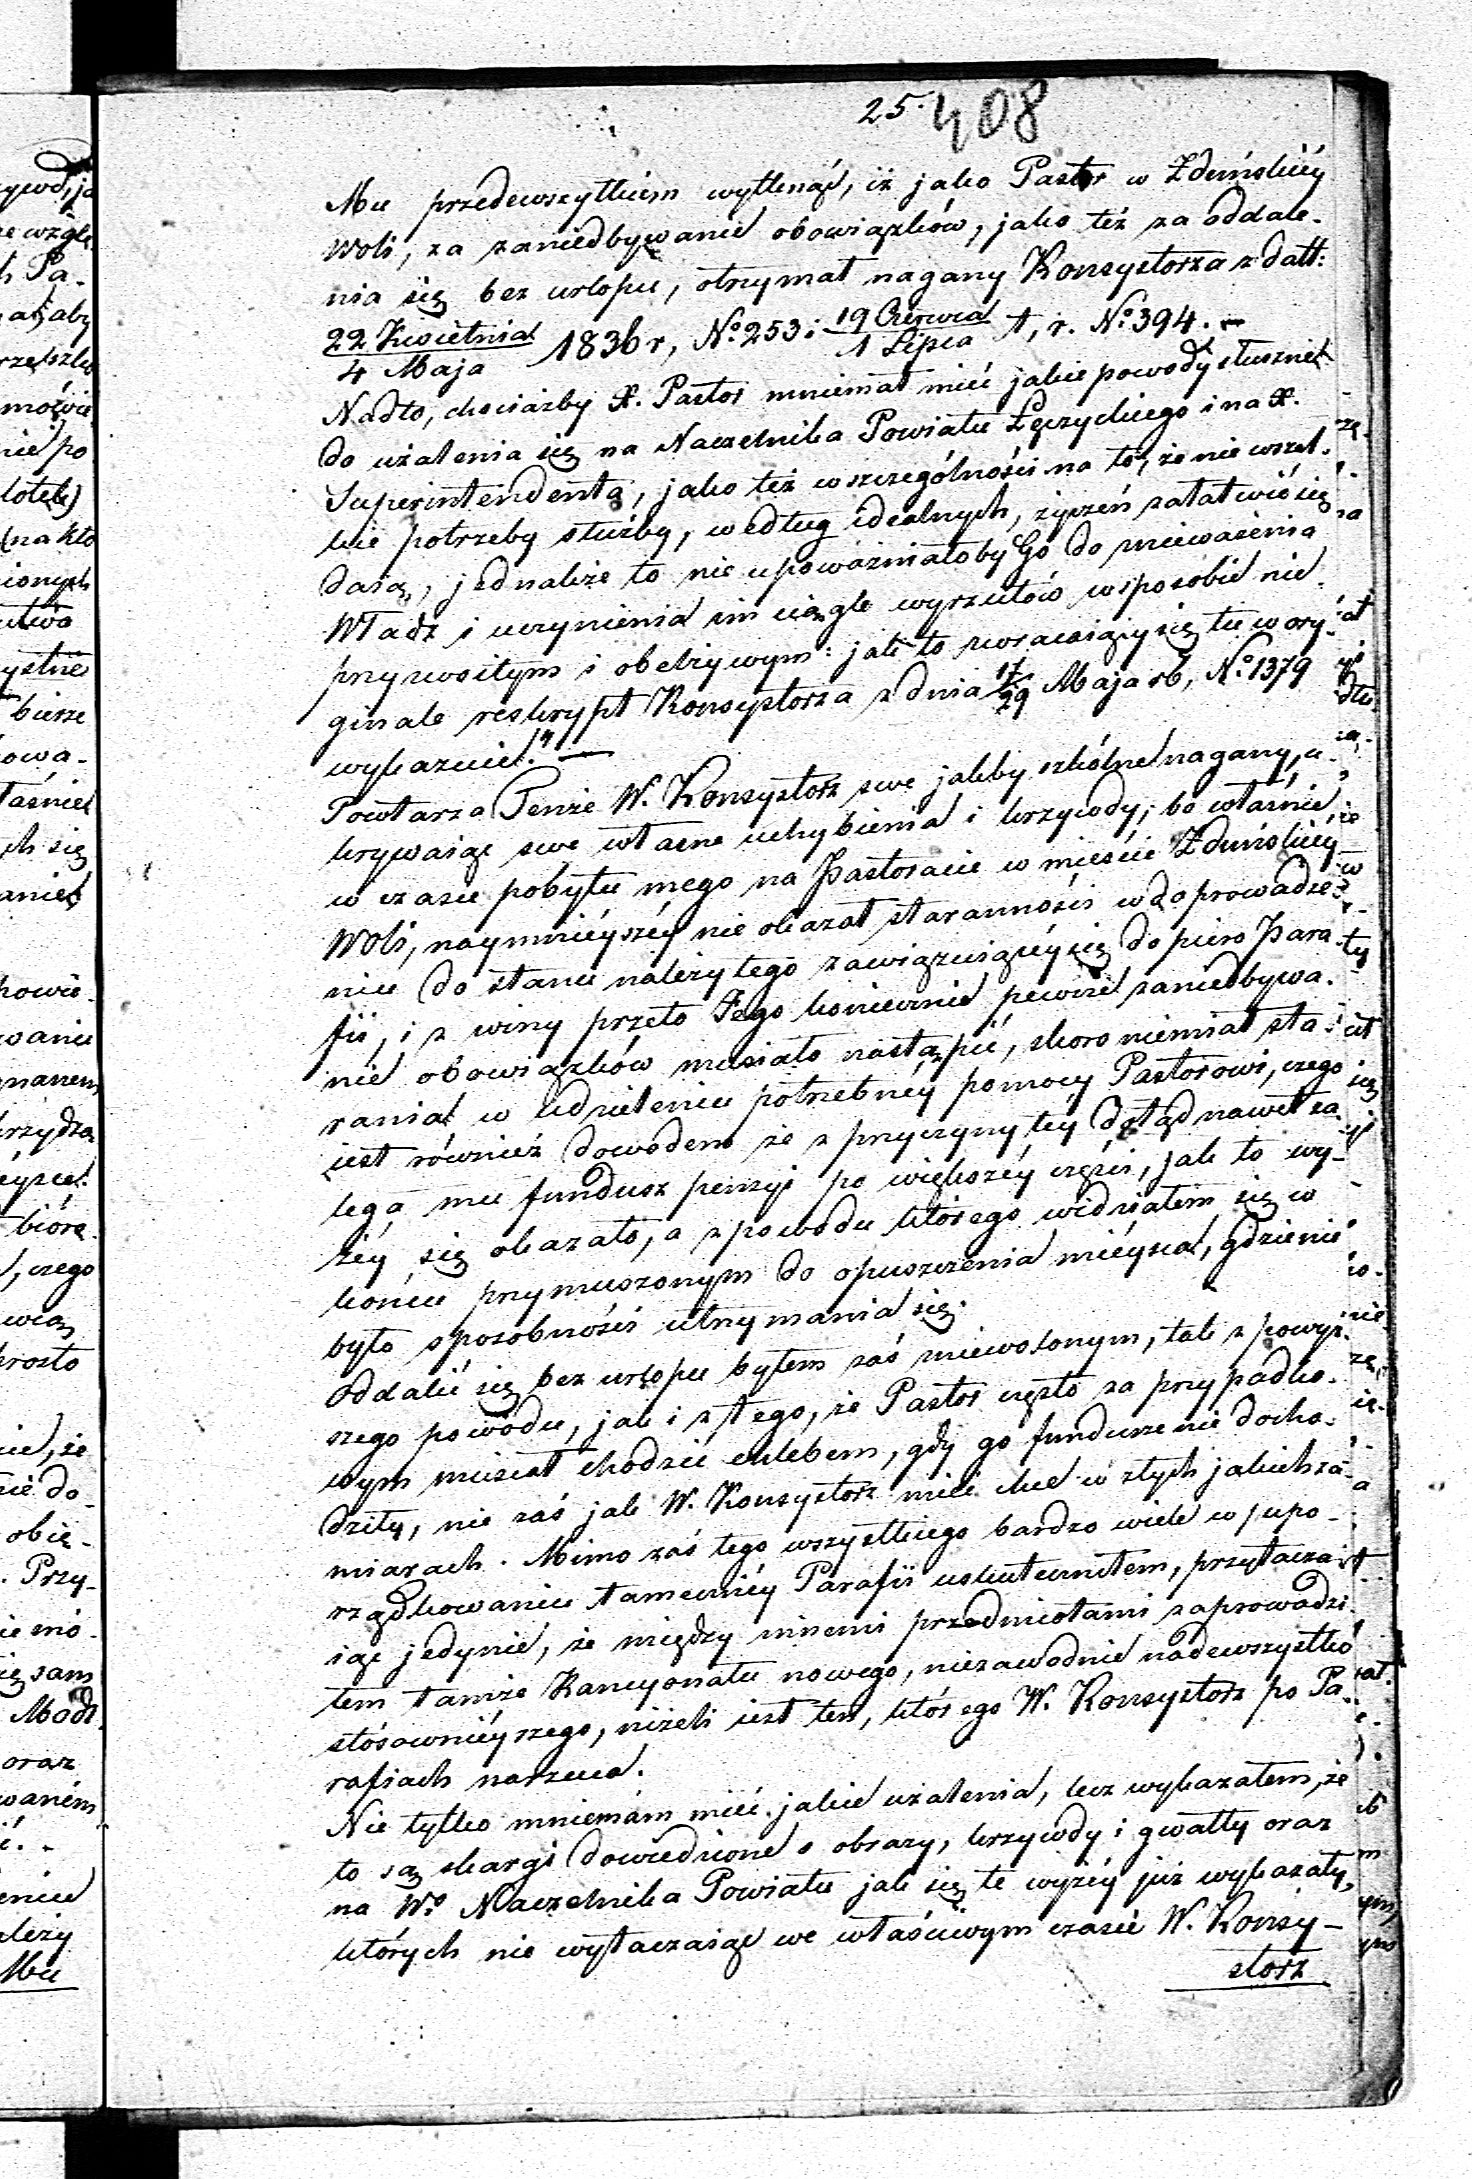 25. 408
Mu przedewszytkiem wytknąć, iż jako Pastor w Zduńskiéy
Woli, za zaniedbywanie obowiązków, jako też za oddale-
nia się bez urlopu, otrzymał nagany Konsystorza z datt:
22 Kwietnia / 4 Maja 1836 r, No. 253 i 19 Czerwca / 1 Lipca t, r. No. 394. -
Nadto, chociażby X. Pastor mniemał mieć jakie powody słuszne
do użalenia się na Naczelnika Powiatu Łęczyckiego i na X.
Superintendenta, jako też w szczególności na to, że nie wszel-
kie potrzeby służby, według idealnych, życzeń załatwić się
daią, jednakże to nie upoważniałoby Go do znieważenia
Władz i uczynienia im ciągle wyrzutów w sposobie nie-
przyzwoitym i obelżywym: jak to zwracaiący się tu w ory-
ginale reskrypt Konsystorza z dnia 17/29 Maja rb, No. 1379
wykazuie." —
Powtarza Tenże W. Konsystorz swe jakby szkólne nagany, u-
krywaiąc swe własne uchybienia i krzywdy; bo właśnie
w czasie pobytu mego na Pastoracie w mieście Zduńskiéy
Woli, naymniéyszéy nie okazał staranności w doprowadze-
niu do stanu należytego zawiązuiącéy się dopiero Para-
fii, i z winy przeto Jego koniecznie pewne zaniedbywa-
nie obowiązków musiało nastąpić, skoro niemiał sta-
rania w udzieleniu potrzebnéy pomocy Pastorowi, czego
iest również dowodem że z przyczyny téy dotąd nawet za-
lega mu fundusz pensyi po większéy części, jak to wy-
żéy się okazało, a z powodu którego widziałem się w
końcu przymuszonym do opuszczenia miéysca, gdzie nie
było sposobności utrzymania się.
Oddalić się bez urlopu byłem zaś zniewolonym, tak z powyż-
szego powodu, jak i z tego, że Pastor często za przypadko-
wym musiał chodzić chlebem, gdy go fundusze nie docho-
dziły, nie zaś jak W. Konsystorz mieć chce w złych jakichza-
miarach. Mimo zaś tego wszystkiego bardzo wiele w upo-
rządkowaniu tameczniéy Parafii uskuteczniłem, przytacza-
iąc jedynie, że między innemi przedmiotami zaprowadzi-
łem tamże Kancyonału nowego, niezawodnie nadewszystko
stósowniéyszego, niżeli iest ten, którego W. Konsystorz po Pa-
rafiach narzuca.
Nie tylko mniemam mieć jakie użalenia, lecz wykazałem, że
to są skargi dowiedzione o obrazy, krzywdy i gwałty oraz
na Wo. Naczelnika Powiatu jak się te wyżéy już wykazały,
których nie wytaczaiąc we właściwym czasie W. Konsy-
storz